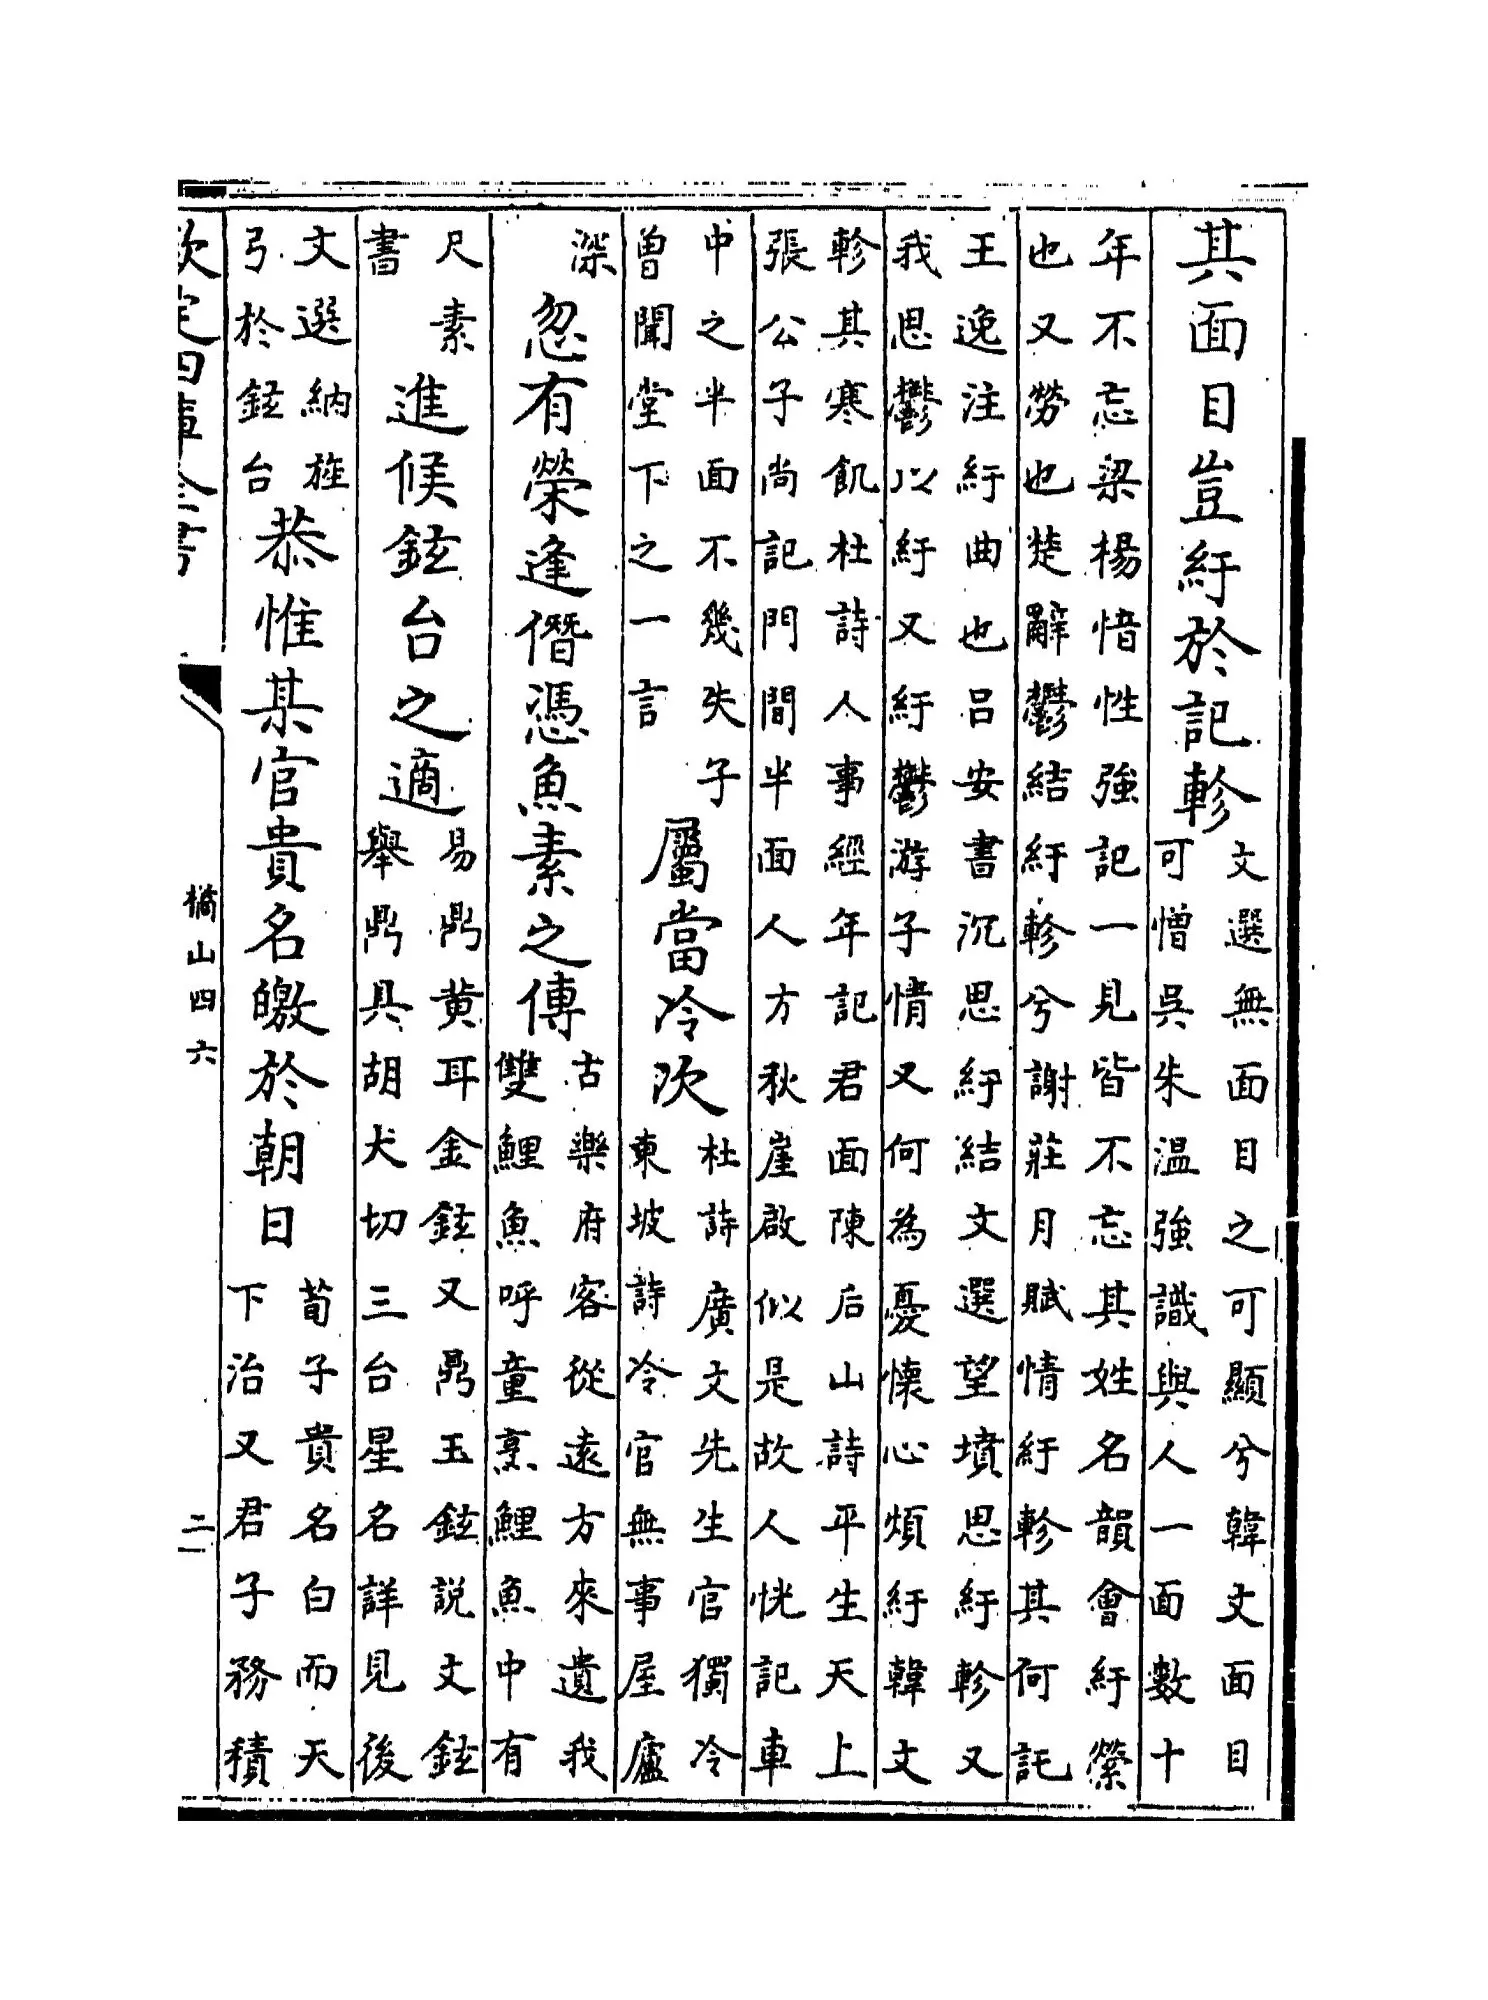 其面目豈紆於記軫
文選無面目之可顯兮韓文面目
可憎吳朱温強識與人一面數十
年不忘梁楊愔性強記一見皆不忘其姓名韻會紆縈
也又勞也楚辭鬱結紆軫兮謝莊月賦情紆軫其何託
王逸注紆曲也吕安書沉思紆結文選望墳思紆軫又
我思鬱以紆又紆鬱游子情又何為憂懷心煩紆韓文
軫其寒飢杜詩人事經年記君面陳后山詩平生天上
張公子尚記門間半面人方秋崖啟似是故人恍記車
中之半面不幾失子
曾聞堂下之一言
屬當冷次
杜詩廣文先生官獨冷
東坡詩冷官無事屋廬
深
忽有榮逢僭憑魚素之傳
古樂府客從遠方來遺我
雙鯉魚呼童烹鯉魚中有
尺素
書
進候鉉台之適
易鼎黄耳金鉉又鼎玉鉉説文鉉
舉鼎具胡犬切三台星名詳見後
文選納旌
弓於鉉台
恭惟某官貴名皦於朝日
荀子貴名白而天
下治又君子務積
欽定四庫全書
橘山四六
二